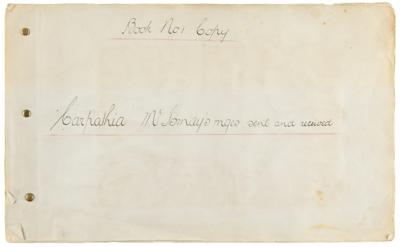 Book No 1 Copy
Carpathia Mr Ismay's mges sent and received